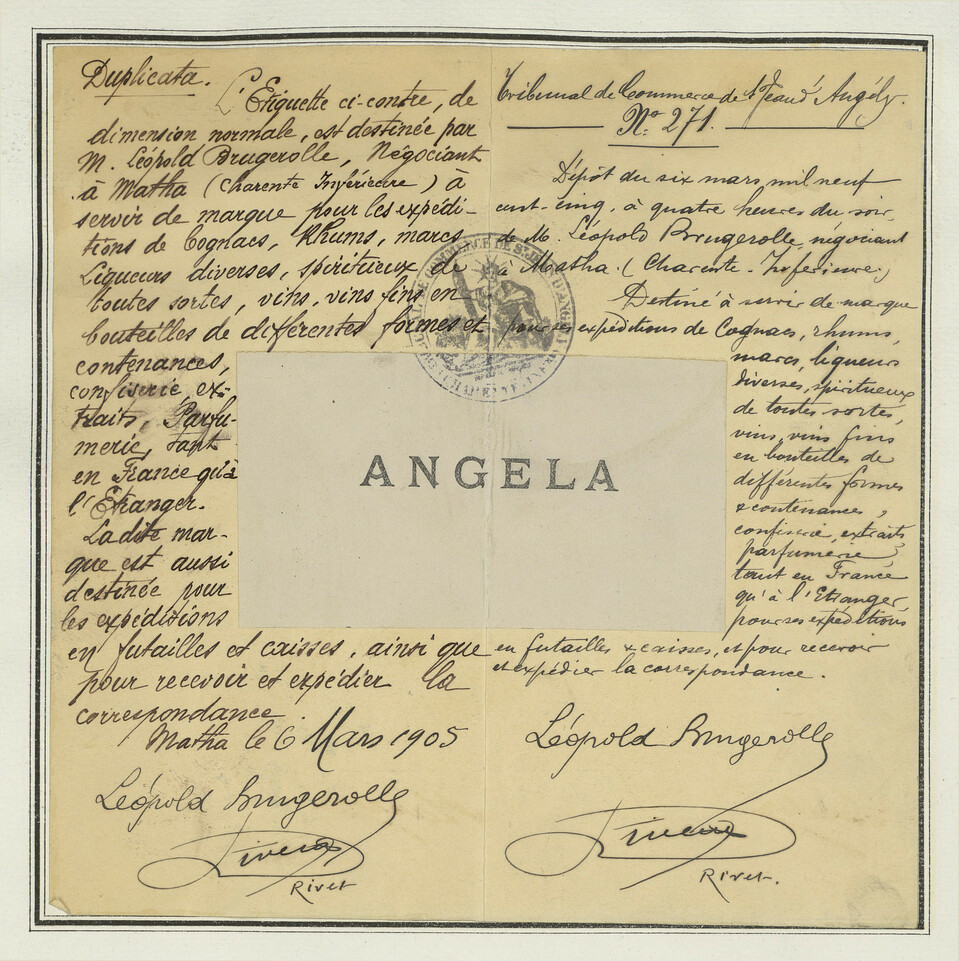 Duplicata.
L'Etiquette ci-contre, de
dimension normale, est destinée par
M. Léopold Brugerolle, Négociant
à Matha (Charente Inférieure) à
servir de marque pour les expédi-
tions de Cognacs, Rhums, marcs
Liqueurs diverses, spiritueux de
toutes sortes, vins, vins fins en
bouteilles de différentes formes et
contenances,
confiserie, ex-
traits, Parfu-
merie, tant
en France qu'à
l'Etranger.
Ladite mar-
que est aussi
destinée pour
les expéditions
en futailles et caisses, ainsi que
pour recevoir et expédier la
correspondance
Matha le 6 Mars 1905
Léopold Brugerolle
Rivet
ANGELA
Tribunal de Commerce de St Jean d'Angély.
No. 271.
Dépôt du six mars mil neuf
cent-cinq, à quatre heures du soir
de M. Léopold Brugerolle, négociant
à Matha. (Charente-Inférieure)
Destiné à servir de marque
pour ses expéditions de Cognacs, rhums,
marcs, liqueurs
diverses, spiritueux
de toutes sortes,
vins, vins fins
en bouteilles de
différentes formes
& contenances,
confiserie, extraits
parfumerie,
tant en France
qu'à l'Etranger,
pour ses expéditions
en futailles & caisses, et pour recevoir
et expédier la correspondance.
Léopold Brugerolle
Rivet.